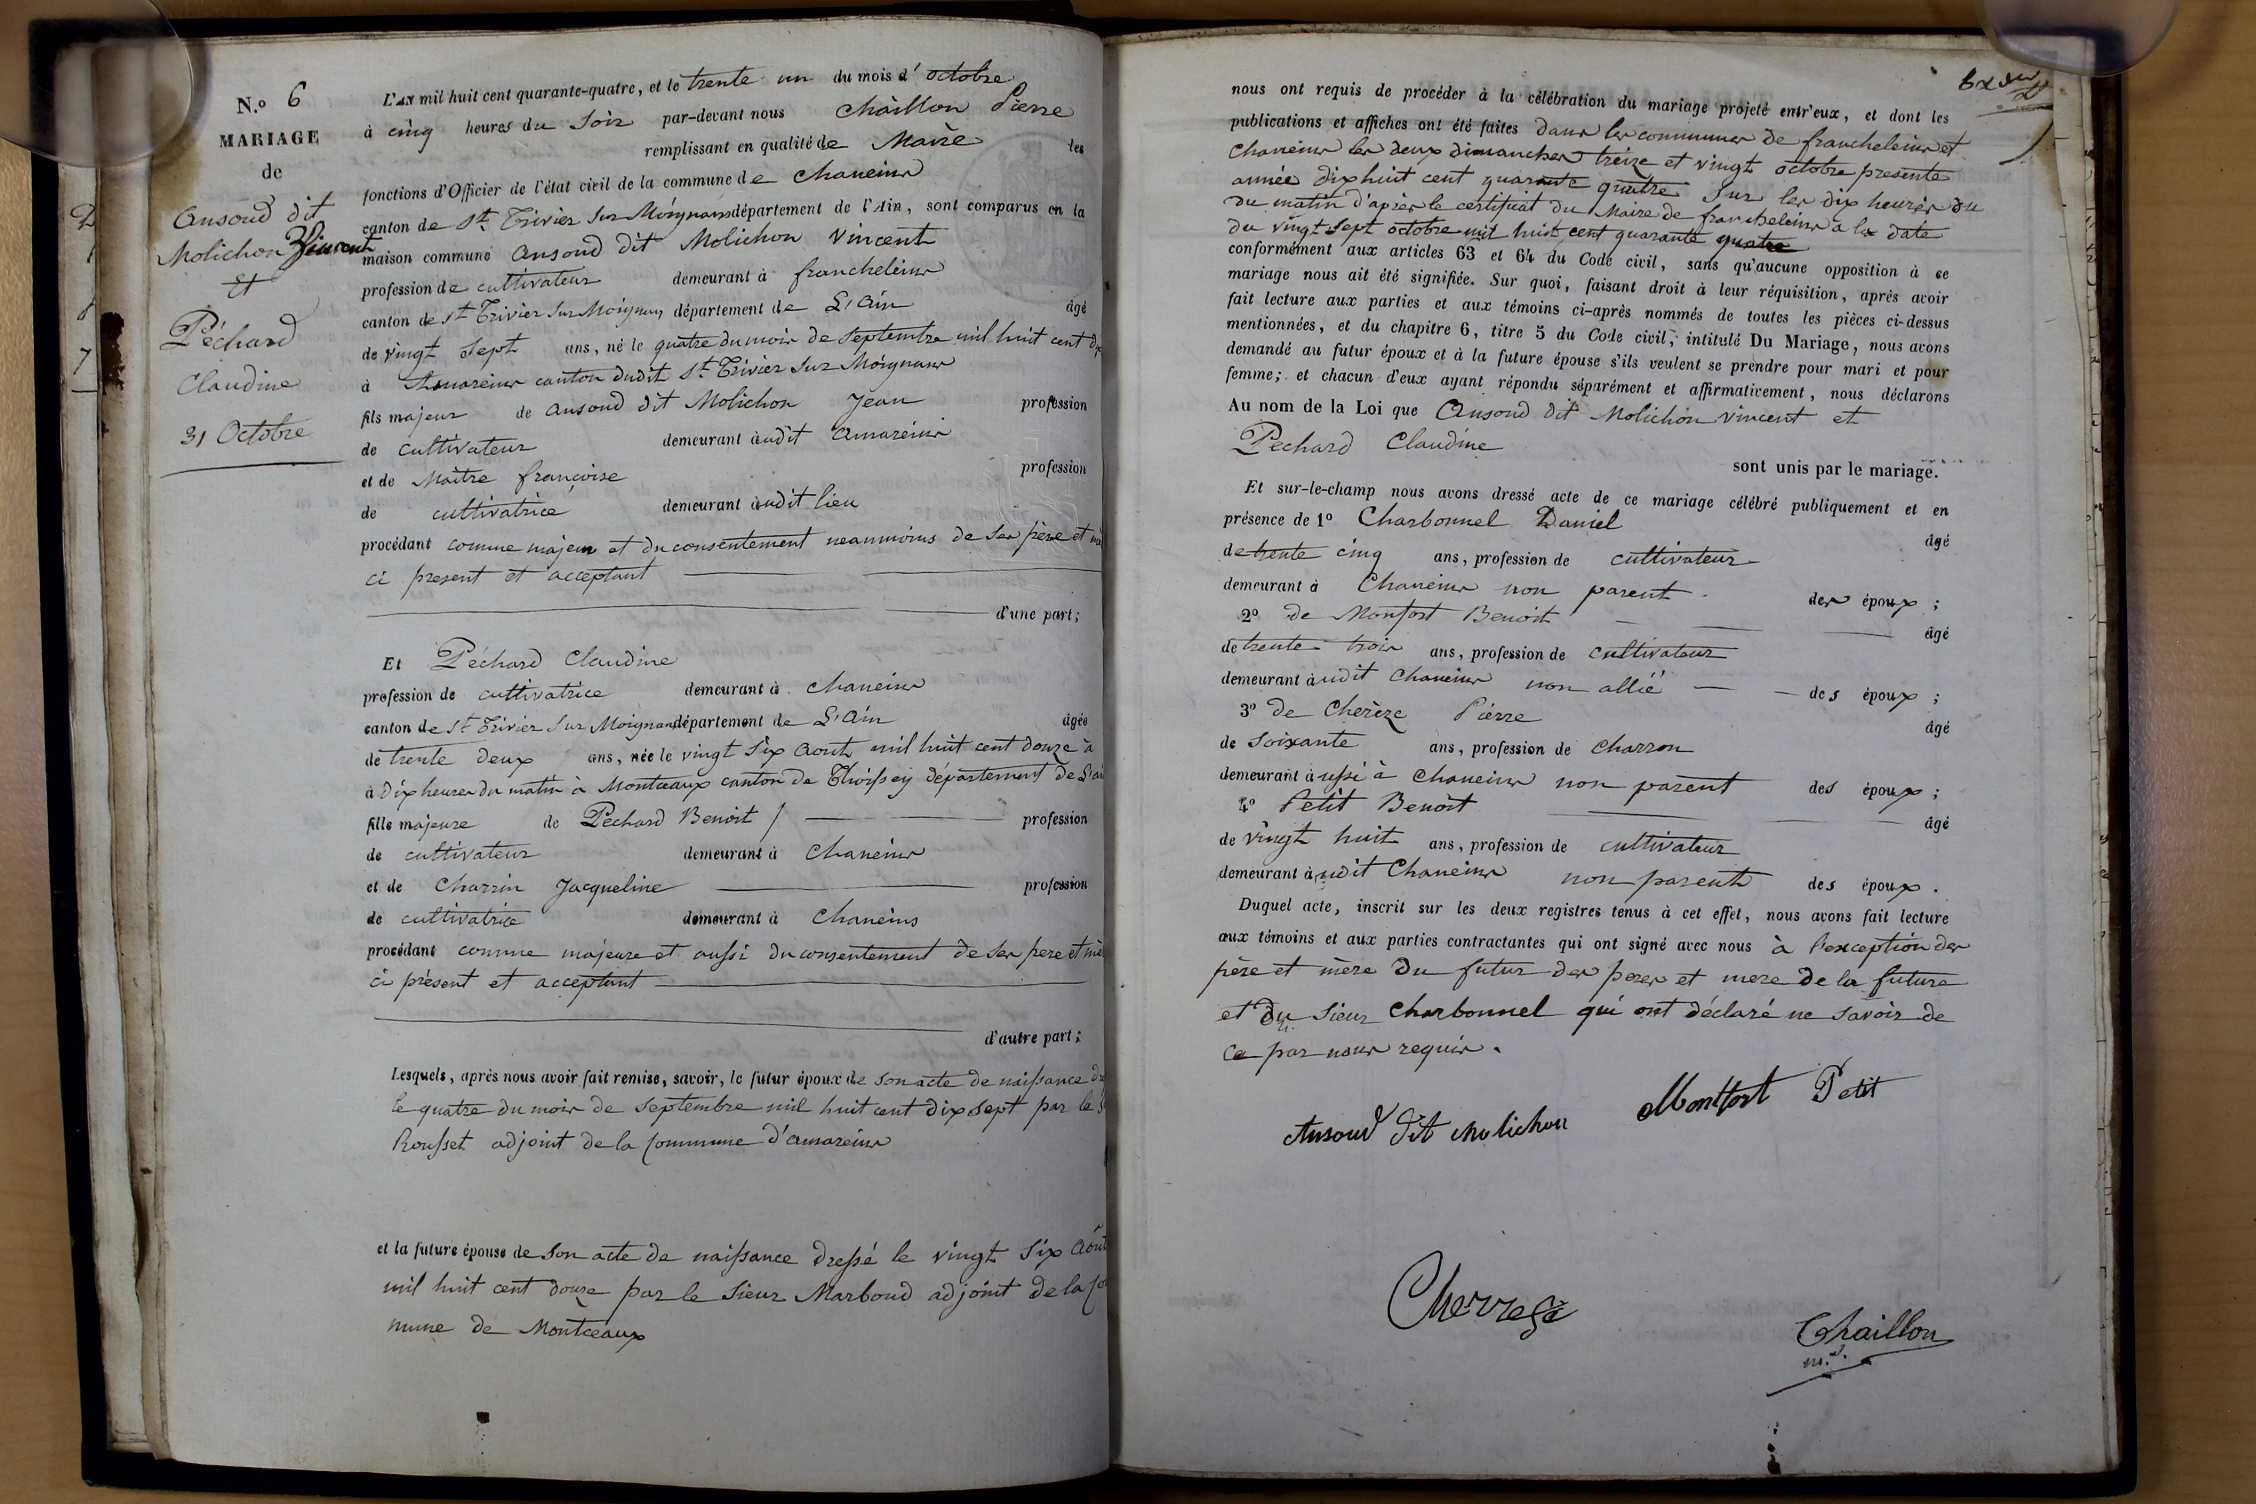 N.o 6
MARIAGE
de
Ansoud dit
Molichon Vincent
Et
Péchard
Claudine
31 Octobre
L'AN mil huit cent quarante-quatre, et le trente un du mois d'octobre
à cinq heures du Soir par-devant nous Chaillon Pierre
remplissant en qualité de Maire les
fonctions d'Officier de l'état civil de la commune de Chaneins
canton de St. Trivier Sur Moignans département de l'Ain, sont comparus en la
maison commune Ansoud dit Molichon Vincent
profession de cultivateur demeurant à francheleins
canton de St Trivier Sur Moignans département de L'Ain âgé
de vingt Sept ans, né le quatre du mois de Septembre mil huit cent dix
à Amareins canton dudit St. Trivier Sur Moignans
fils majeur de Ansoud dit Molichon Jean profession
de cultivateur demeurant audit Amareins
et de Maitre françoise profession
de cultivatrice demeurant audit lieu
procédant comme majeur et du consentement neanmoins de Ses père et mè
ci present et acceptant
d'une part;
Et Péchard Claudine
profession de cultivatrice demeurant à Chaneins
canton de St Trivier Sur Moignans département de L'Ain âgée
de trente deux ans, née le vingt Six Aout mil huit cent douze à
à dix heures du matin à Montceaux canton de Thoissey département de L'ai
fille majeure de Péchard Benoit / profession
de cultivateur demeurant à Chaneins
et de Charrin Jacqueline profession
de cultivatrice demeurant à Chaneins
procédant comme majeure et aussi du consentement de Ses pere et mè
ci présent et acceptant
d'autre part;
Lesquels, après nous avoir fait remise, savoir, le futur époux de Son acte de naissance
le quatre du mois de Septembre mil huit cent dix Sept par le
Rousset adjoint de la Commune d'amareins
et la future épouse de Son acte de naissance dressé le vingt Six Août
mil huit cent douze par le Sieur Marboud adjoint de la Co
mune de Montceaux
nous ont requis de procéder à la célébration du mariage projeté entr'eux, et dont les
publications et affiches ont été faites dans les communes de francheleins et
Chaneins les deux dimanches treize et vingt octobre presente
année dix huit cent quarante quatre Sur les dix heures du
du matin d'après le certificat du Maire de francheleins à la date
du vingt Sept octobre mil huit cent quarante quatre
conformément aux articles 63 et 64 du Code civil, sans qu'aucune opposition à ce
mariage nous ait été signifiée. Sur quoi, faisant droit à leur réquisition, après avoir
fait lecture aux parties et aux témoins ci-après nommés de toutes les pièces ci-dessus
mentionnées, et du chapitre 6, titre 5 du Code civil, intitulé Du Mariage, nous avons
demandé au futur époux et à la future épouse s'ils veulent se prendre pour mari et pour
femme; et chacun d'eux ayant répondu séparément et affirmativement, nous déclarons
Au nom de la Loi que Ansoud dit Molichon vincent et
Pechard Claudine
sont unis par le mariage.
Et sur-le-champ nous avons dressé acte de ce mariage célébré publiquement et en
présence de 1o Charbonnel Daniel
âgé
de trente cinq ans, profession de cultivateur
demeurant à Chaneins non parent des époux;
2o de Monfort Benoit âgé
de trente trois ans, profession de cultivateur
demeurant audit Chaneins non allié des époux;
3o de Cherèze Pierre âgé
de Soixante ans, profession de Charron
demeurant aussi à Chaneins non parent des époux;
4o Petit Benoit âgé
de vingt huit ans, profession de cultivateur
demeurant audit Chaneins non parent des époux.
Duquel acte, inscrit sur les deux registres tenus à cet effet, nous avons fait lecture
aux témoins et aux parties contractantes qui ont signé avec nous à l'exception des
père et mère du futur des perer et mere de la future
et du Sieur Charbonnel qui ont déclaré ne Savoir de
ce par nous requis.
Ansoud dit Molichon Montfort Petit
Cherreze
Chaillon